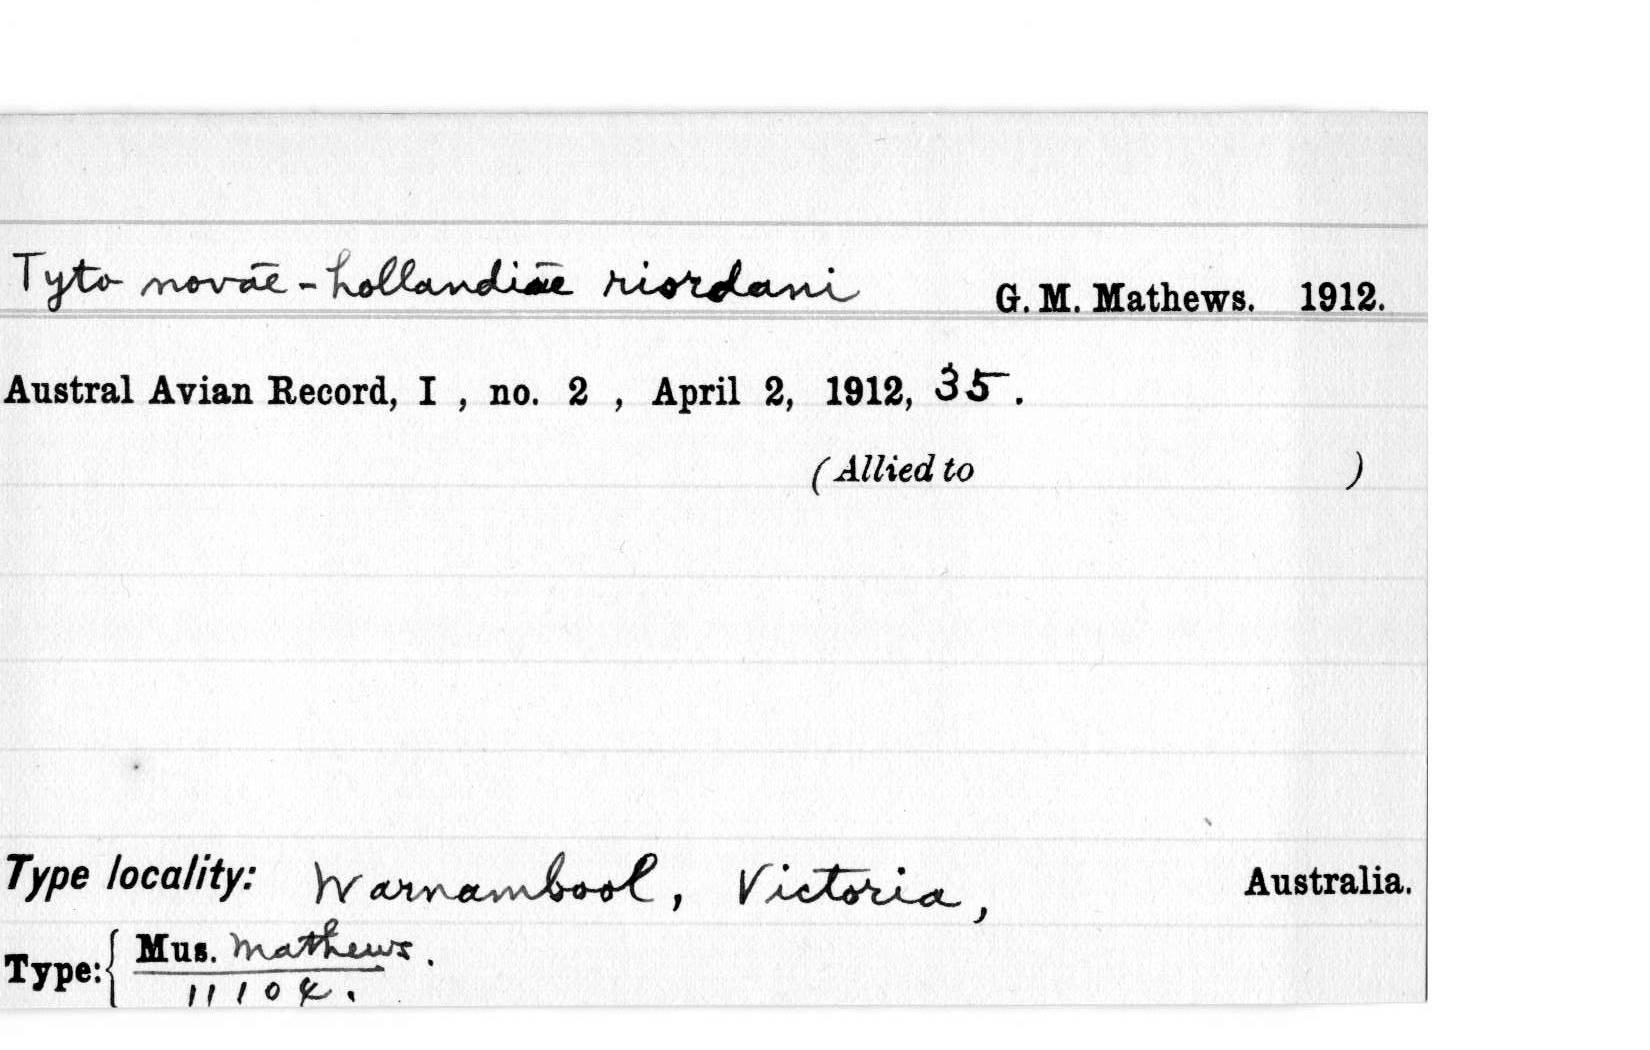 Tyto novae-hollandiae riordani G. M. Mathews. 1912.
Austral Avian Record, I , no. 2 , April 2, 1912, 35.
(Allied to )
Type locality: Warnambool, Victoria, Australia.
Type: { Mus. Mathews.
11104.